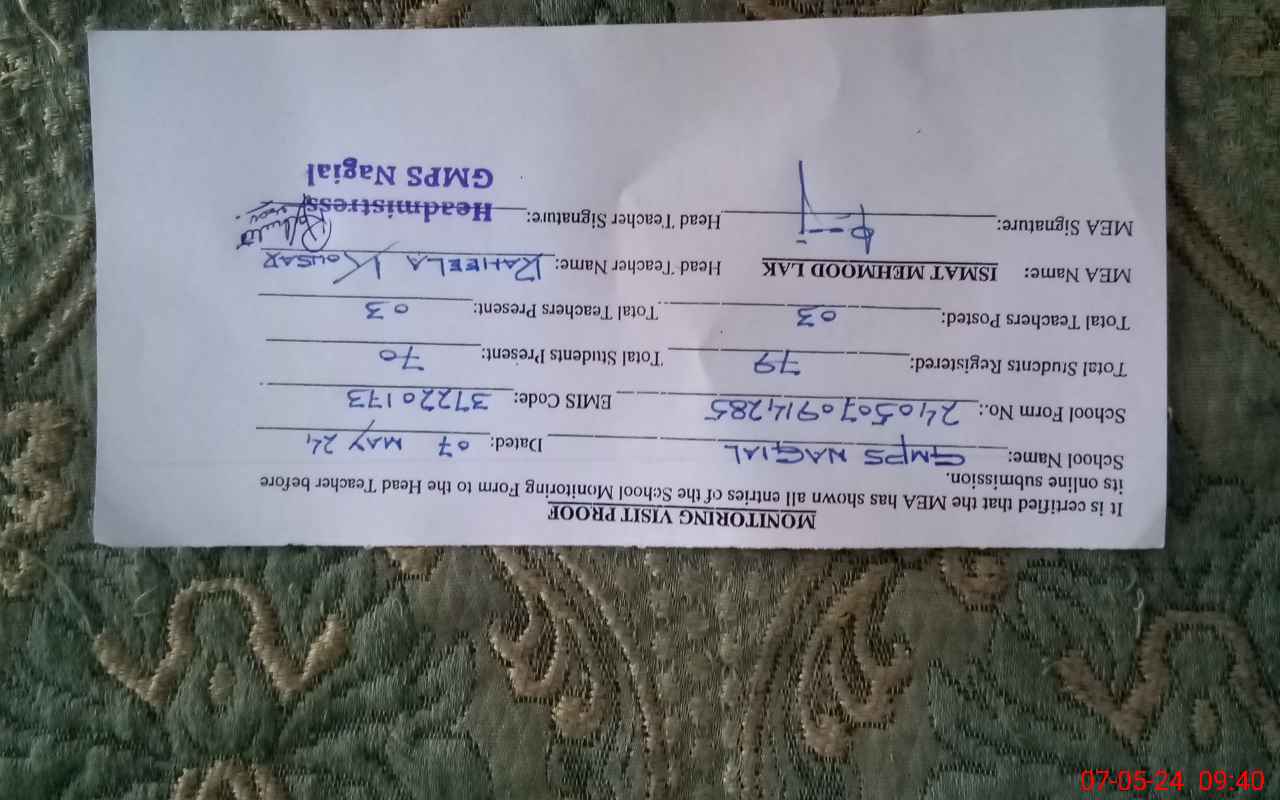 MONITORING VISIT PROOF
It is certified that the MEA has shown all entries of the School Monitoring Form to the Head Teacher before
its online submission.
School Name: GMPS NAGIAL Dated: 07 MAY 24
School Form No.: 2405070914285 EMIS Code: 37220173
Total Students Registered: 79 Total Students Present: 70
Total Teachers Posted: 03 Total Teachers Present: 03
MEA Name: ISMAT MEHMOOD LAK Head Teacher Name: RAHEELA KOUSAR
MEA Signature: Head Teacher Signature:
Headmistress
GMPS Nagial
07-05-24 09:40